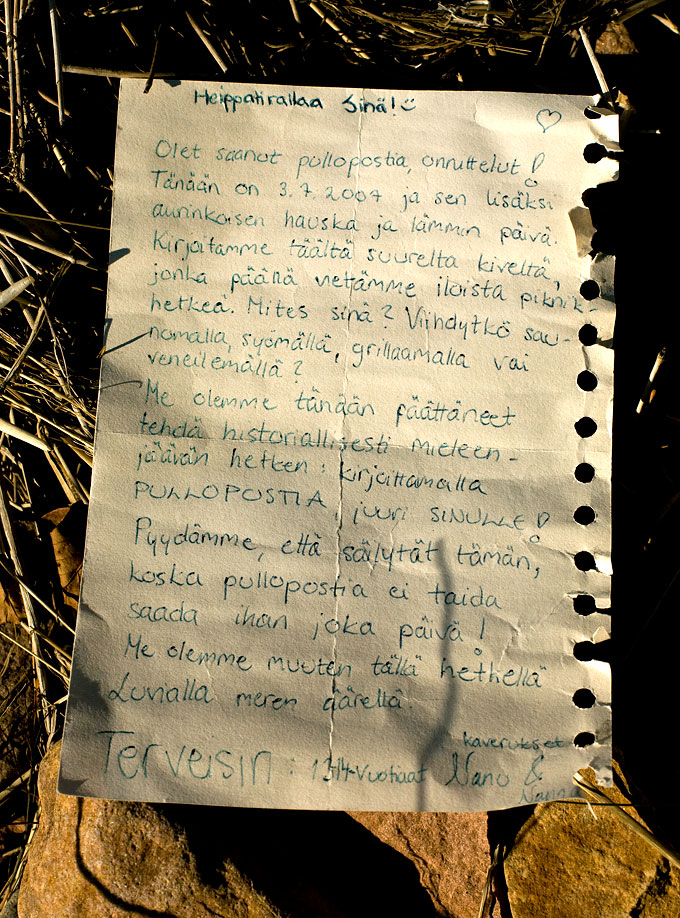 Heippatirallaa Sinä! ☺ ♡
Olet saanut pullopostia, onnittelut!
Tänään on 3.7.2007 ja sen lisäksi
aurinkoisen hauska ja lämmin päivä.
Kirjoitamme täältä suurelta kiveltä,
jonka päällä vietämme iloista piknik-
hetkeä. Mites sinä? Viihdytkö sau-
nomalla, syömällä, grillaamalla vai
veneilemällä?
Me olemme tänään päättäneet
tehdä historiallisesti mieleen-
jäävän hetken: kirjoittamalla
PULLOPOSTIA, juuri SINULLE!
Pyydämme, että säilytät tämän,
koska pullopostia ei taida
saada ihan joka päivä!
Me olemme muuten tällä hetkellä
Luvialla meren äärellä.
kaverukset
Terveisin: 13-14-vuotiaat Nanu &
Nanna